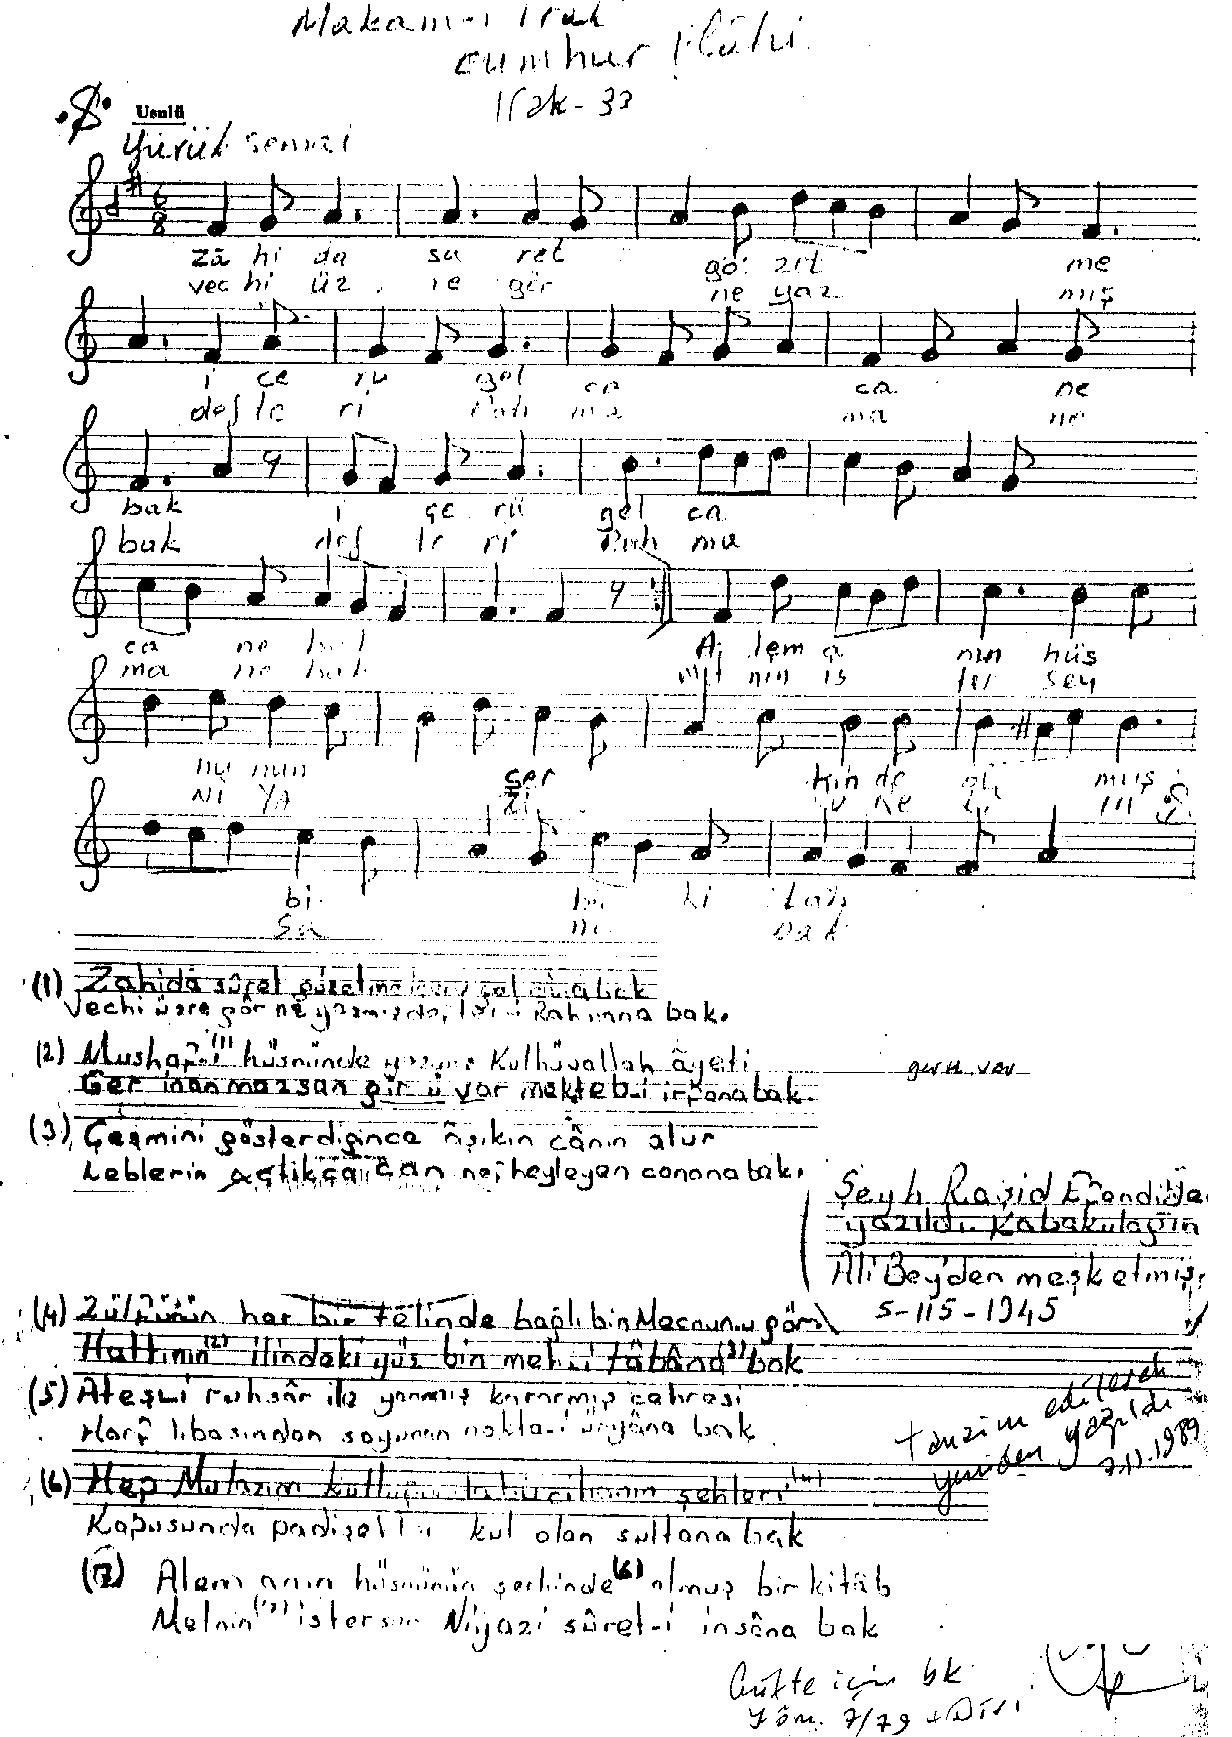 Makam-ı Irak
cumhur ilâhi
Irak - 33
Usulü
Yürük semai
6
8
zâ hi da su ret gö zet me
vec hi üz re gör ne yaz mış
i çe rü gel ca ca ne
def te ri Rah ma ma ne
bak i çe rü gel ca
bak def te ri Rah ma
ca ne bak A lem a nın hüs
ma ne bak met nin is ter sen
nü nün şer hin de ol muş
Ni YA zi
bi bi ki tab
sa ne bak
(1) Zahidâ sûret gözetme içerü gel câna bak
Vechi üzre gör ne yazmış defter-i Rahmana bak.
(2) Mushaf-ı (1) hüsnünde yazmış Kulhüvallah âyeti
Ger inanmazsan gir ü var mekteb-i irfana bak. gerü var
(3) Çeşmini gösterdiğince âşıkın cânın alur
Leblerin açtıkça can neyleyen canana bak.
Şeyh Raşid Efendi'den
yazıldı. Kabakulağın
Ali Bey'den meşketmiş.
5-115-1945
(4) Zülfünün her bir telinde bağlı bin Mecnunu gör
Hattının (2) ilindeki yüz bin meh-i tâbâna (3) bak
(5) Ateş-i ruhsâr ile yanmış kararmış çehresi
Harf libasından soyunan nokta-i üryâna bak
tanzim edilerek
yeniden yazıldı
7.11.1989
(6) Hep Mutazım cihanın şehleri (4)
Kapusunda padişeh kul olan sultana bak
(7) Alem anın hüsnünün şerhinde (6) olmuş bir kitâb
Metnin istersen Niyazi sûret-i insâna bak
Güfte için bk
Yön. 7/79